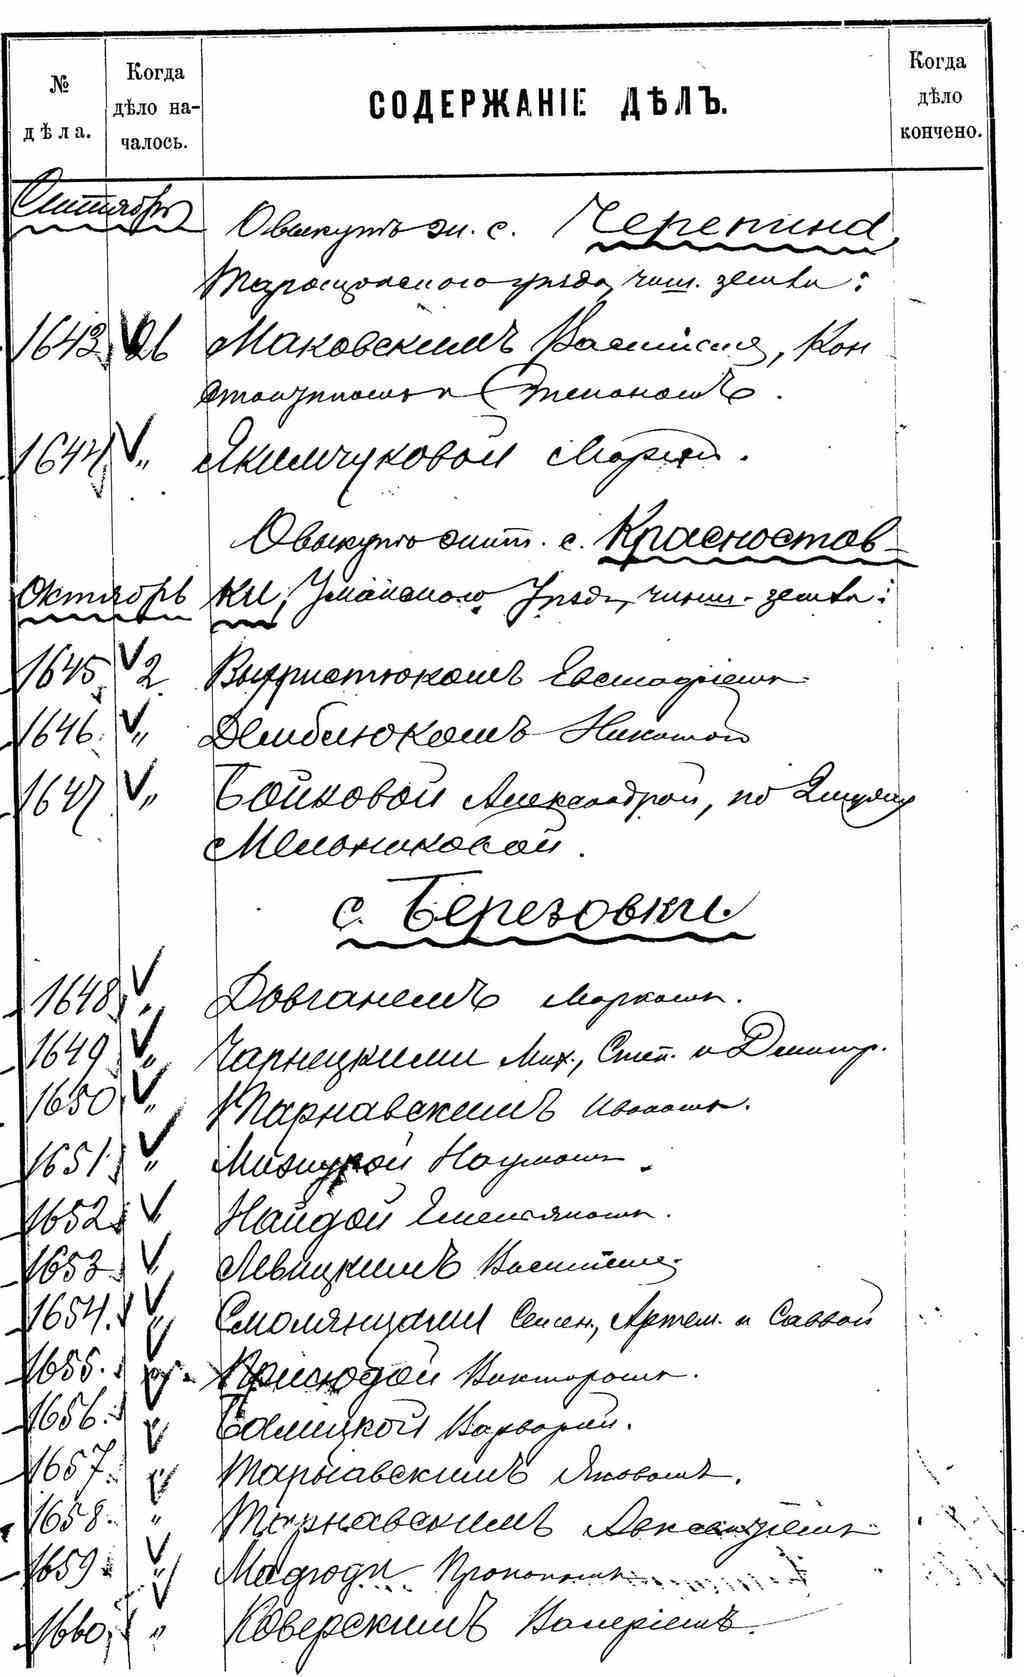 № дѣла.
Когда дѣло началось.
СОДЕРЖАНІЕ ДѢЛЪ.
Когда дѣло кончено.
Сентябрь
О выкупѣ жи. с. Черепина
Таращанскаго уѣзда, чинш. земли:
1643 26 Маковскимъ Василіемъ, Кон
стантиномъ и Степаномъ.
1644 „ Якимчуковой Маріей.
О выкупѣ жит. с. Красностав-
Октябрь
ки, Уманскаго Уѣзда, чинш. земли:
1645 2 Евстафіемъ
1646 „ Дембилюкомъ Никитой
1647 „ Бойковой Александрой, по
Мельниковой.
с. Березовки.
1648 „ Довганемъ Маркомъ.
1649 „ Чарнецкими Мих., Степ. и Димитр.
1650 „ Тарнавскимъ Иваномъ.
1651 „ Наумомъ.
1652 „ Найдой Емельяномъ.
1653 Левицкимъ Василіемъ.
1654. „ Смолянцами Семен., Артем. и Саввой
1655. Викторомъ.
1656. „ Варварой.
1657. „ Тарнавскимъ Яковомъ.
1658. „ Тарнавскимъ Авксентіемъ
1659 „ Прокопомъ
1660 „ Коверскимъ Валеріемъ.